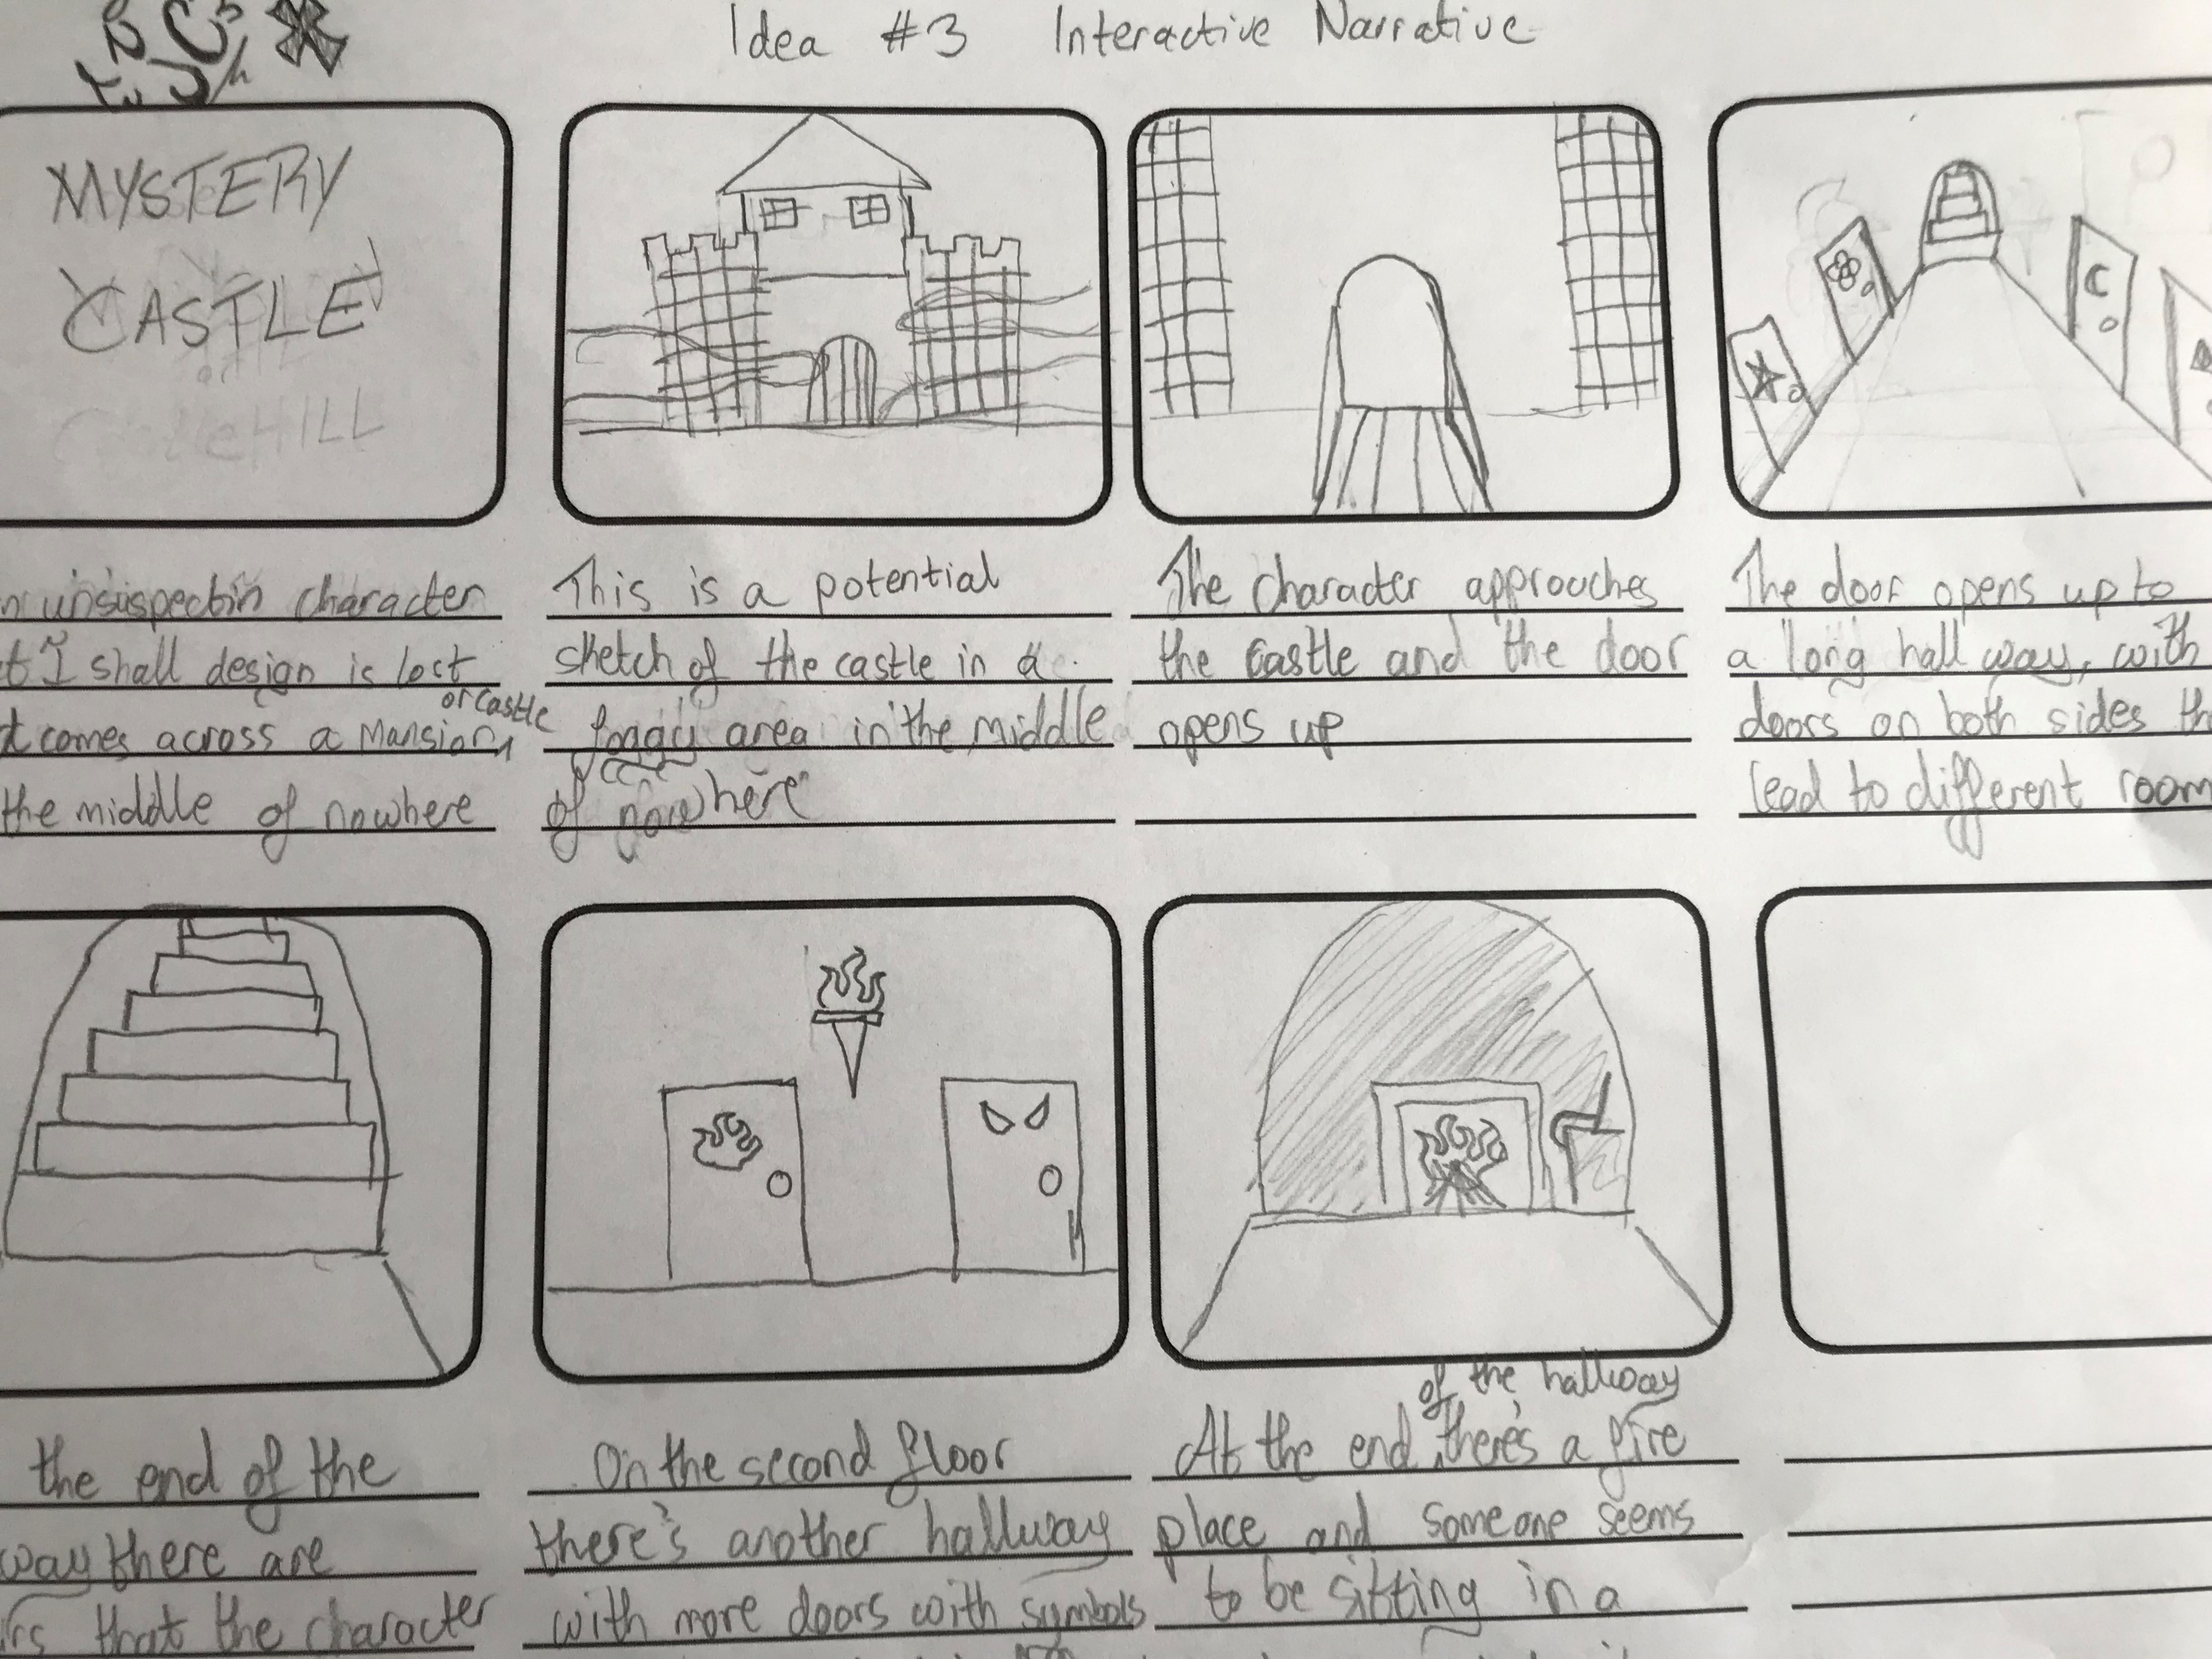 Idea #3 Interactive Narrative
MYSTERY
CASTLE
HILL
n unsuspectin character
t I shall design is lost
t comes across a mansion or castle
the middle of nowhere
This is a potential
sketch of the castle in a
foggy area in the middle
of nowhere
The character approaches
the castle and the door
opens up
The door opens up to
a long hall way, with
doors on both sides th
lead to different room
the end of the
way there are
irs that the character
On the second floor
there's another hallway
with more doors with symbols
At the end of the hallway there's a fire
place and someone seems
to be sitting in a